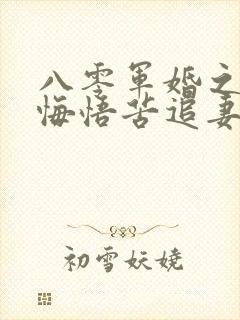 八零军婚之
悔悟苦追妻
初雪妖娆